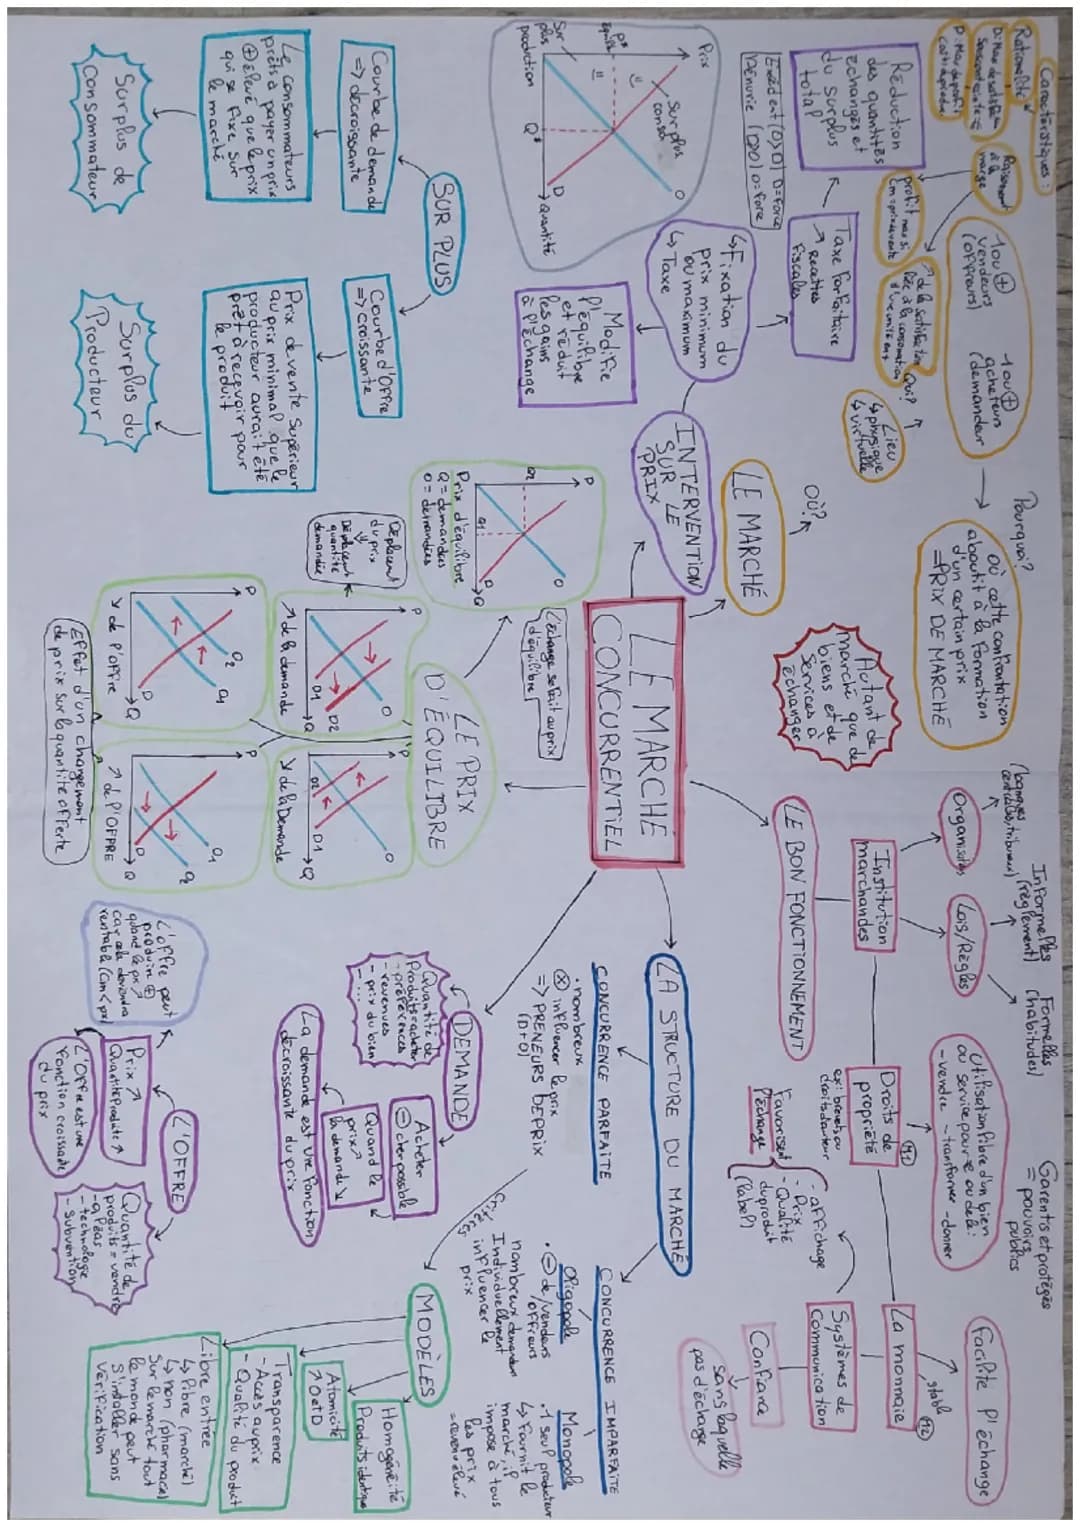 LE MARCHÉ
CONCURRENTIEL
LE MARCHÉ
Où?
Lieu
↳ physique
↳ virtuelle
Qui?
1 ou ⊕
vendeurs
(offreurs)
1 ou ⊕
acheteurs
(demandeur
Pourquoi?
Où cette confrontation
aboutit à la formation
d'un certain prix
= PRIX DE MARCHÉ
Autant de
marché que de
biens et de
services à
échanger
Caractéristiques :
Rationalité
Raisonnent
à la
marge
profit max si
Cm = prix de vente
↗ de la satisfaction
liée à la consommation
d'une unité en +
INTERVENTION
SUR LE
PRIX
↳ Fixation du
prix minimum
ou maximum
↳ Taxe
Modifie
l'équilibre
et réduit
les gains
à l'échange
Taxe forfaitaire
↗ Recettes
fiscales
Réduction
des quantités
échangés et
du surplus
total
Excédent (O>D) D = force
Pénurie (D>O) O = force
Prix
P*
équilib
Surplus
conso
Sur
plus
production
Q*
O
D
Quantité
SURPLUS
Courbe de demande
=> décroissante
Le consommateurs
prêts à payer un prix
⊕ élevé que le prix
qui se fixe sur
le marché
Surplus de
Consommateur
Courbe d'Offre
=> croissante
Prix de vente Supérieur
au prix minimal que le
producteur aurait été
prêt à recevoir pour
le produit
Surplus du
Producteur
LE PRIX
D'ÉQUILIBRE
L'échange se fait au prix
d'équilibre
P
O
D
Q
Q1
Prix d'équilibre
Q = demandées
O = demandées
Déplacent
du prix
⇓
Déplacent
quantité
demandée
P
O
D1
D2
Q
↗ de la demande
P
O
D1
D2
Q
↘ de la Demande
P
O2
O1
D
Q
↘ de l'offre
P
O1
O2
D
Q
↗ de l'OFFRE
Effet d'un changement
de prix sur la quantité offerte
LE BON FONCTIONNEMENT
Institution
marchandes
Organisation
(banques
centrales, tribunaux)
Lois/Règles
Informelles
(règlement)
Formelles
(habitudes)
Droits de
propriété
M1
ex: brevet ou
droits d'auteur
Utilisation libre d'un bien
ou service pour se ou de là:
- vendre - transformer - donner
Garentis et protégés
= pouvoirs
publics
La monnaie
M2
stable
Facilite l'échange
Systèmes de
Communication
- affichage
- Prix
- Qualité
du produit
(label)
Favorisent
l'échange
Confiance
sans laquelle
pas d'échange
LA STRUCTURE DU MARCHÉ
CONCURRENCE PARFAITE
• nombreux
⊗ influencer le prix
=> PRENEURS DE PRIX
(D+O)
CONCURRENCE IMPARFAITE
Oligopole
• ⊖ de vendeurs
/offreurs
nombreux demandeur
Individuellement
influencer le
prix
Monopole
• 1 seul producteur
↳ Fournit le
marché, il
impose à tous
les prix
MODÈLES
Homogénéité
Produits identique
Atomicité
↗ O et D
Transparence
- Accès au prix
- Qualité du produit
Libre entrée
↳ libre (marché)
↳ non (pharmacie)
Sur le marché tout
le monde peut
s'installer sans
vérification
DEMANDE
Quantité de
Produits acheter
- préférences
- revenues
- prix du bien
- ...
Acheter
⊖ cher possible
Quand le
prix ↗
la demande ↘
La demande est une fonction
décroissante du prix
L'OFFRE
Quantité de
produits = vendre
- aléas
- technologie
- subvention
Prix ↗
Quantité produite ↗
L'Offre est une
fonction croissante
du prix
L'offre peut
produire ⊕
quand le prix ↗
car cela deviendra
rentable (Cm < px)